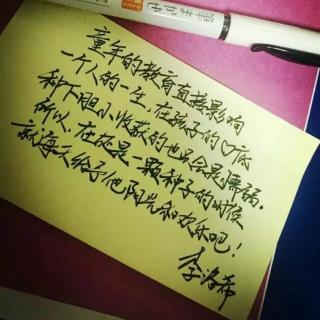 童年的教育直接影响
一个人的一生，在孩子的♡底
种下胆小收获的也只会是懦弱。
所以，在还是一颗种子的时候
就每天给予他阳光和欢乐吧！
李洛希